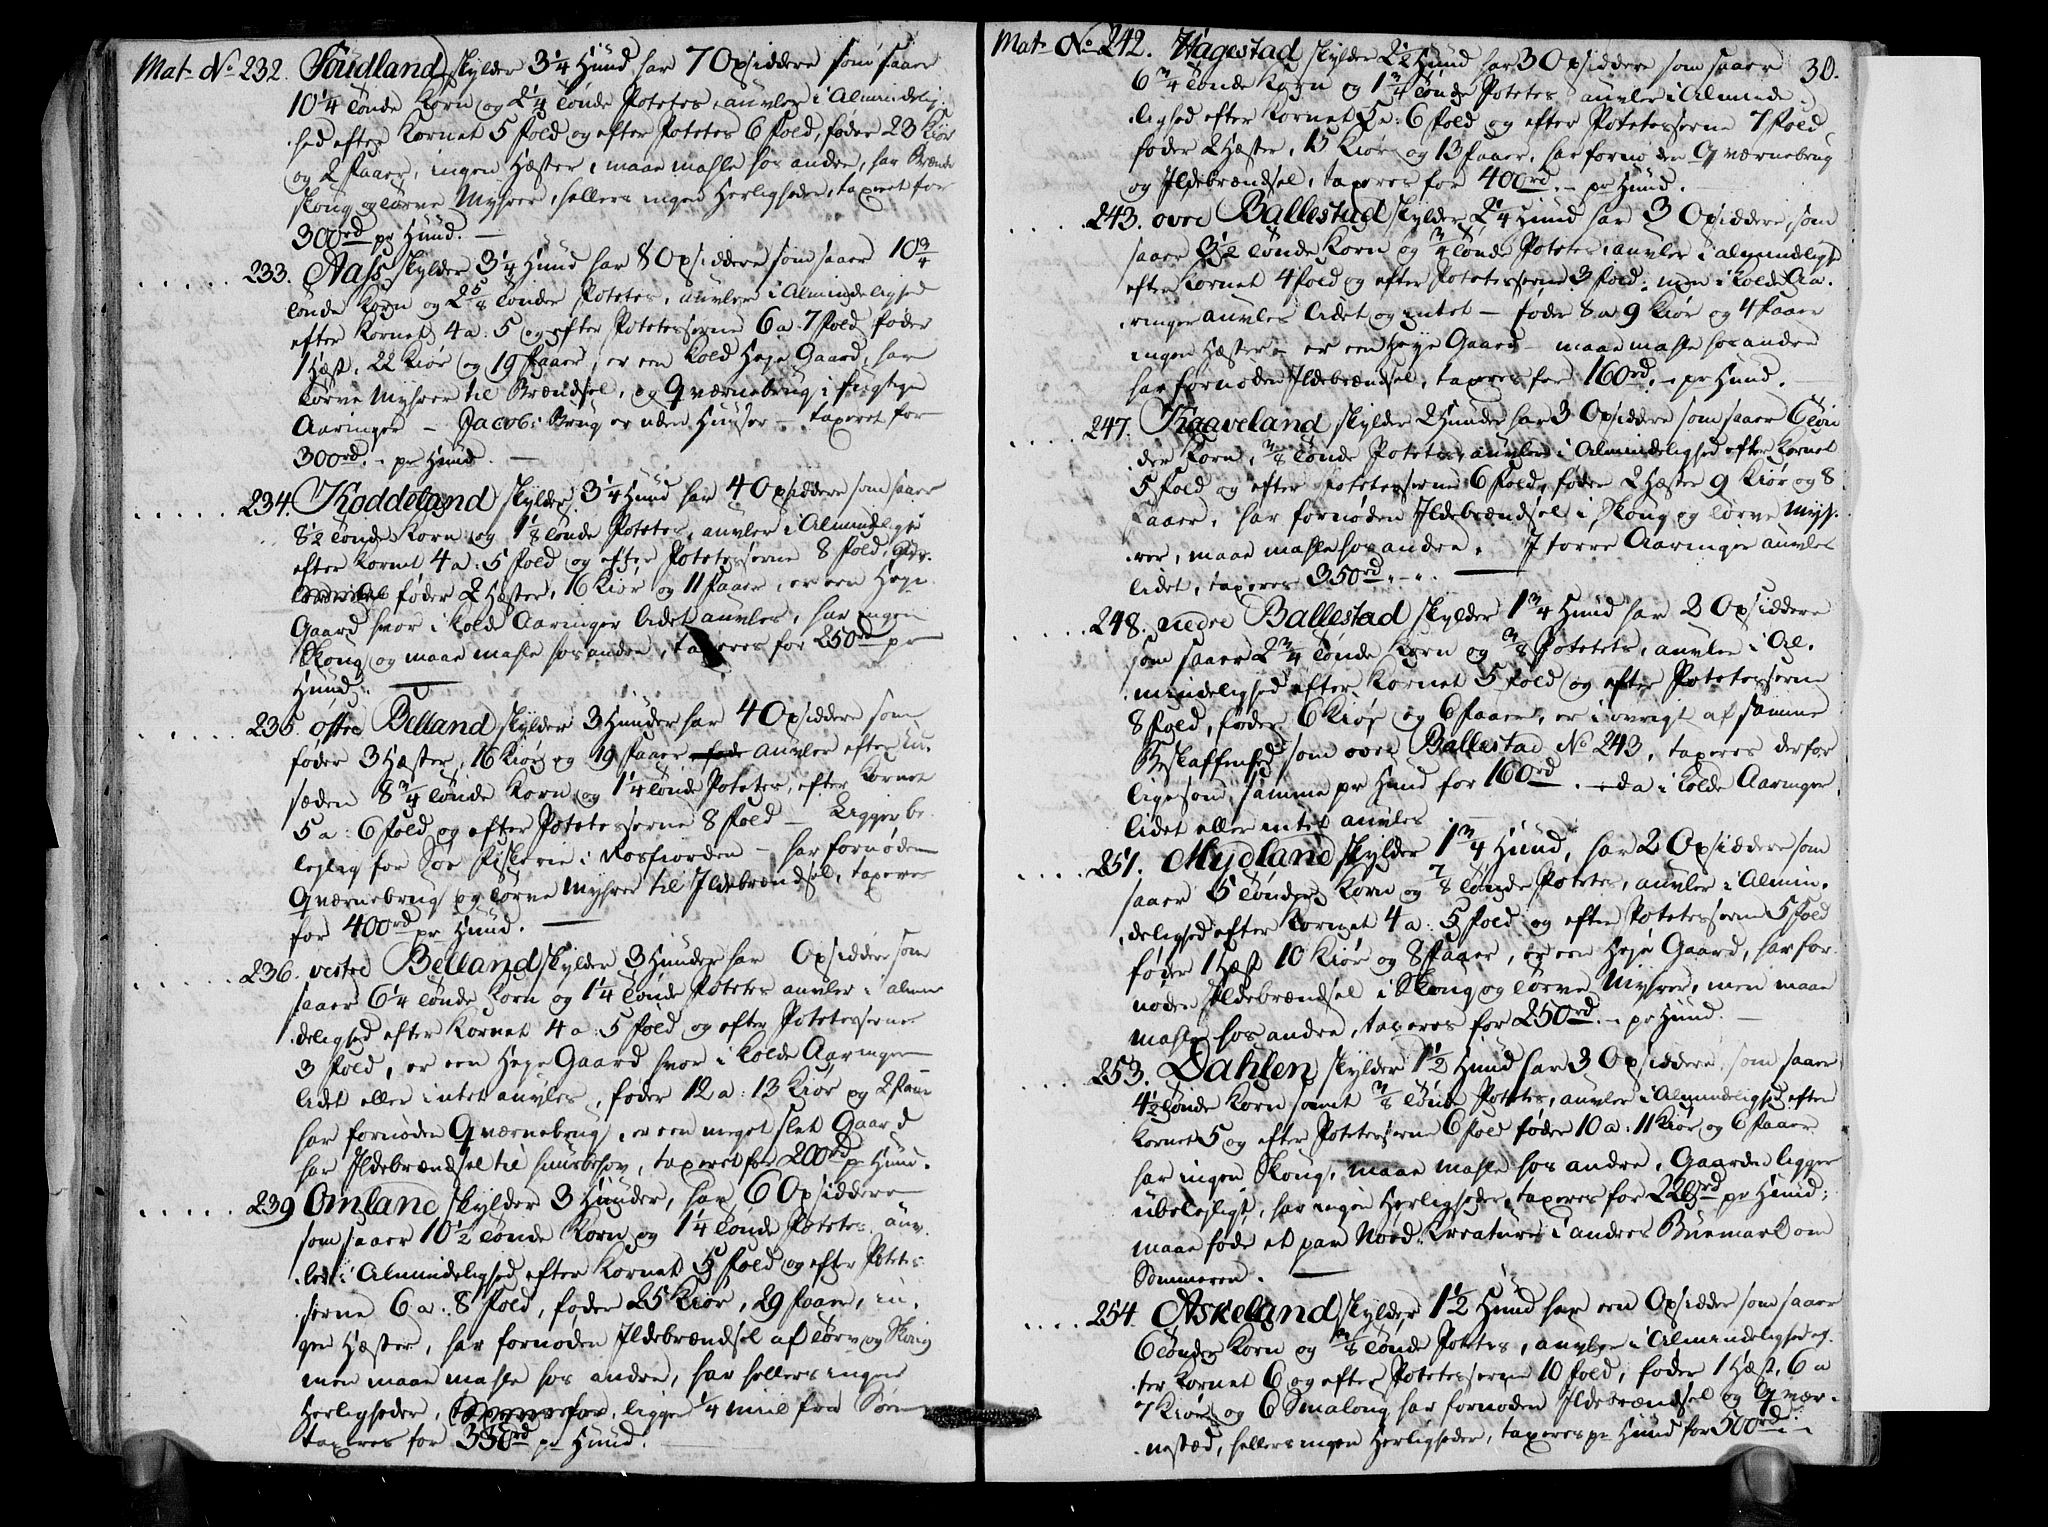 Mat No 232. Foüdland skylder 3¼ Hŭnd har 7 Opsiddere som saaer
10¼ tønde Korn og 2¼ tønde Potetes, auvler i Almindelig-
hed efter Kornet 5 fold og efter Potetes 6 fold, føder 23 Kiør
og 2 faaer, ingen Hæster, maae mahle hos andre, har Brænde
Skoug og tørve Myhrer, hellers ingen Herligheder, taxeret for
300rd pr Hŭnd. —
233. Aass skylder 3¼ Hŭnd har 8 Opsiddere som saaer 10¾
tønde Korn og 2⅝ tønder Potetes, auvler i Almindelighed
efter Kornet 4 a: 5 og efter Potetesserne 6 a: 7 fold, føder
1 Hæst, 22 Kiør og 19 faaer, er een kold Heye Gaard, har
tørve Myhrer til Brændsel, og Qværnebrug i fugtige
Aaringer — Jacobs Brug er uden Huuser — taxeret for
300rd. — pr Hŭnd. —
234. Koddeland skylder 3¼ Hŭnd har 4 Opsiddere som saaer
8½ tønde Korn og 1⅛ tønde Potetes, auvler i Almindeligh
efter Kornet 4 a: 5 fold og efter Potetesserne 8 fold,
føder 2 Hæster, 16 Kiør og 11 faaer, er een Heye
Gaard hvor i kolde Aaringer lidet auvles, har ingen
Skoug og maae mahle hos andre, taxeres for 250rd pr
Hŭnd. —
235. østre Belland skylder 3 Hŭnder har 4 Opsiddere som
føder 3 Hæster, 16 Kiør og 19 faaer auvler efter Ud-
sæden 8¾ tønde Korn og 1¼ tønde Potetes, efter Kornet
5 a: 6 fold og efter Potetesserne 8 fold — Ligger be-
lejlig for Søe fiskerie i Rosfiorden — har fornøden
Qværnebrug og tørve Myhrer til Ildebrændsel, taxeres
for 400rd pr Hŭnd. —
236. vestre Belland skylder 3 Hŭnder har Opsiddere som
saaer 6¼ tønde Korn og 1¼ tønde Potetes auvler i almin
delighed efter Kornet 4 a: 5 fold og efter Potetesserne
3 fold, er een Heye Gaard hvor i kolde Aaringer
lidet eller intet auvles, føder 12 a: 13 Kiør og 2 faaer
har fornøden Qværnebrug, er een meget slet Gaard
har Ildebrændsel til huusbehov, taxeret for 200rd pr Hŭnd.
239 Omland skylder 3 Hŭnder, har 6 Opsiddere
som saaer 10½ tønde Korn og 1¼ tønde Potetes, auv-
ler i Almindelighed efter Kornet 5 fold og efter Potetes-
serne 6 a: 8 fold, føder 25 Kiør, 29 faaer, in-
gen Hæster, har fornøden Ildebrændsel af tørv og Skoug
men maae mahle hos andre, har hellers ingen
Herligheder, ligger ¼ miil fra Søen
taxeres for 350rd pr Hŭnd. —
Mat No 242. Hagestad skylder 2½ Hŭnd har 3 Opsiddere som saaer 30.
6¾ tønde Korn og 1¾ tønde Potetes auvler i Alminde
lighed efter Kornet 5 a: 6 fold og efter Potetesserne 7 fold,
føder 2 Hæster, 15 Kiør og 13 faaer, har fornøden Qværnebrug
og Ildebrændsel, taxeres for 400rd. — pr Hŭnd. —
243. øvre Ballestad skylder 2¼ Hŭnd har 3 Opsiddere, som
saaer 3½ tønde Korn og ¾ tønde Potetes auvler i almindeligh
efter Kornet 4 fold og efter Potetesserne 3 fold, men i kolde Aa-
ringer auvles lidet og intet — føder 8 a 9 Kiør og 4 faaer
ingen Hæster — er een Heye Gaard — maae mahle hos andre
har fornøden Ildebrændsel, taxeres for 160rd. — pr Hŭnd. —
247. Kaaveland skylder 2 Hŭnder har 3 Opsiddere som saaer 6 tøn
der Korn, ⅜ tønde Potetes, auvler i Almindelighed efter Kornet
5 fold og efter Potetesserne 6 fold, føder 2 Hæster 9 Kiør og 8
faaer, har fornøden Ildebrændsel i Skoug og tørve Myh-
rer, maae mahle hos andre. I tørre Aaringer auvles
lidet, taxeres 350rd. — . —
248. nedre Ballestad skylder 1¾ Hŭnd har 2 Opsiddere
som saaer 2¾ tønde Korn og ⅜ Potetes, auvler i Al-
mindelighed efter Kornet 5 fold og efter Potetesserne
8 fold, føder 6 Kiør og 6 faaer, er i øvrigt af samme
Beskaffenhed som øvre Ballestad No 243, taxeres derfor
ligesom samme pr Hŭnd for 160rd. — da i kolde Aaringer
lidet eller intet auvles —
251. Mydland skylder 1¾ Hŭnd, har 2 Opsiddere som
saaer 5 tønder Korn og ⅞ tønde Potetes, auvler i Almin-
delighed efter Kornet 4 a: 5 fold og efter Potetesserne 5 fold
føder 1 Hæst 10 Kiør og 8 faaer, er een Heye Gaard, har for-
nøden Ildebrændsel i Skoug og tørve Myhrer, men maae
mahle hos andre, taxeres for 250rd. — pr Hŭnd. —
253. Dahlen skylder 1½ Hŭnd har 3 Opsiddere som saaer
4½ tønde Korn samt ⅜ tønde Potetes, auvler i Almindelighed efter
Kornet 5 og efter Potetesserne 6 fold føder 10 a: 11 Kiør og 6 faaer
har ingen Skoug, maae mahle hos andre, Gaarden ligger
ubelejligt, har ingen Herligheder, taxeres for 220rd pr Hŭnd,
maae føde et par Nød Kreature i andres Buemark om
Sommeren. —
254. Askeland skylder 1½ Hŭnd har een Opsidder som saaer
6 tønder Korn og ⅜ tønde Potetes, auvler i Almindelighed ef-
ter Kornet 6 og efter Potetesserne 10 fold, føder 1 Hæst, 6 a
7 Kiør og 6 Smalong har fornøden Ildebrændsel og Qvær-
nestæd, hellers ingen Herligheder, taxeres pr Hŭnd for 500rd —